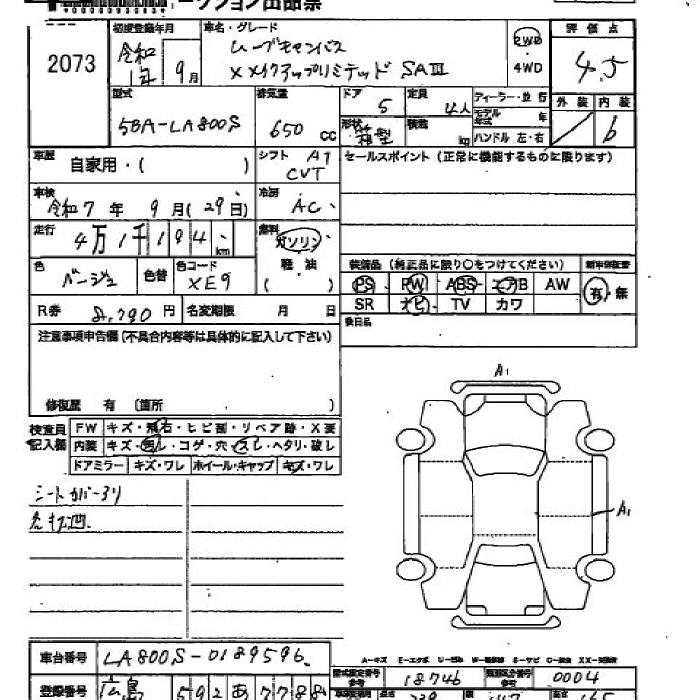 ークション出品票
2073
初度登録年月 令和1年 9月
車名・グレード ムーブキャンバス
XメイクアップリミテッドSAⅢ
2WD
4WD
評価点 4.5
外装 内装 6
型式 5BA-LA800S
排気量 650 cc
ドア 5
定員 4人
形状 箱型
積載 kg
ディーラー・並行
モデル年式 年
ハンドル 左・右
車歴 自家用・( )
シフト AT CVT
セールスポイント(正常に機能するものに限ります)
車検 令和7年 9月(29日)
冷房 AC
走行 4万1千194 km
燃料 ガソリン
軽油
( )
色 ベージュ 色替
色コード XE9
装備品(純正品に限り○をつけてください)
新車保証書
PS PW ABS エアB AW
有・無
SR ナビ TV カワ
R券 8,790円 名変期限 月 日
後日品
注意事項申告欄(不具合内容等は具体的に記入して下さい)
修復歴 有(箇所 )
検査員記入欄
FW キズ・飛石・ヒビ割・リペア跡・X要
内装 キズ・汚レ・コゲ・穴・スレ・ヘタリ・破レ
ドアミラー キズ・ワレ ホイール・キャップ キズ・ワレ
シートカバー
A1
A1
車台番号 LA800S-0189596
A-キズ E-エクボ
登録番号 広島 592 あ 7788
型式指定番号 18746
類別区分番号 0004